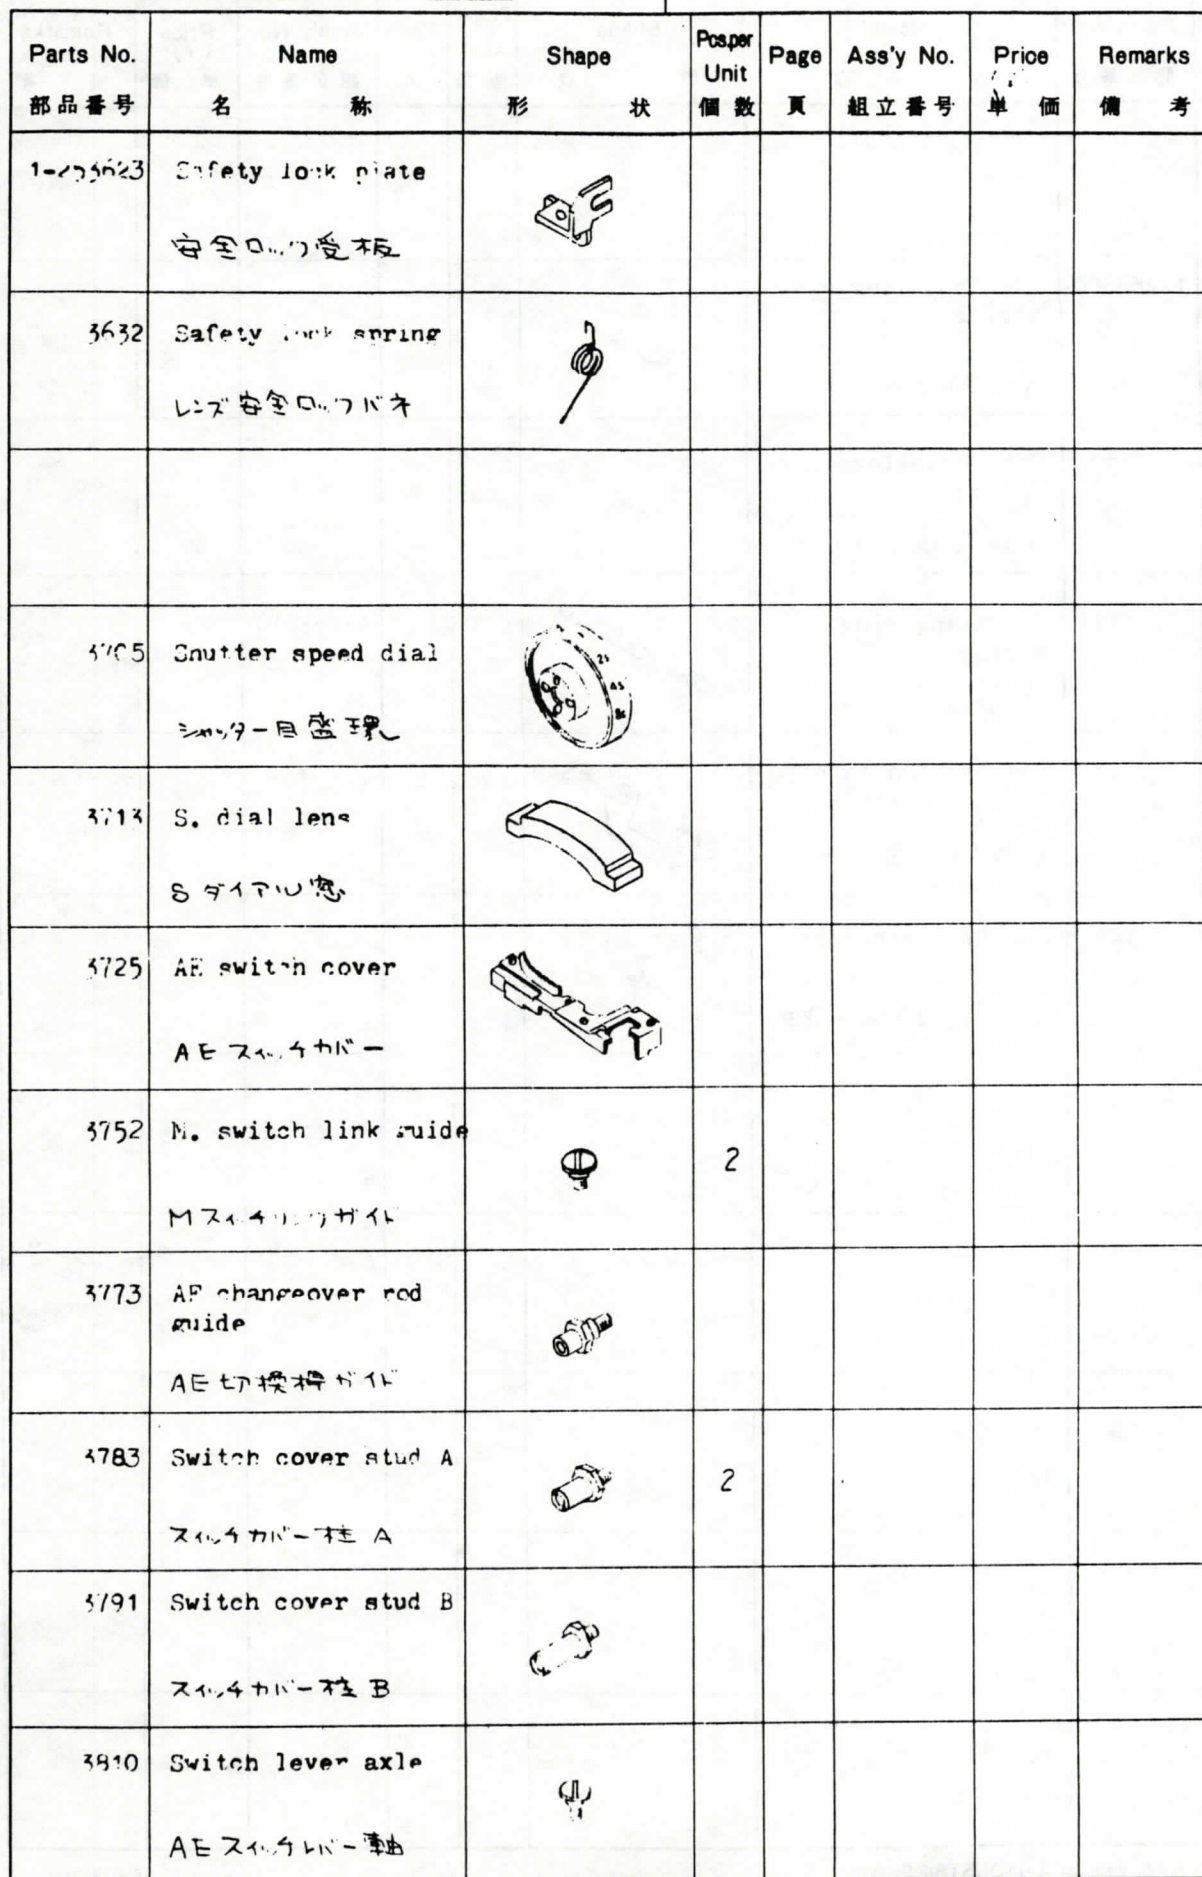 Parts No. Name Shape Pcs.per Unit Page Ass'y No. Price Remarks
部品番号 名 称 形 状 個数 頁 組立番号 単 価 備 考
Safety lock plate
安全ロック受板
3632 Safety lock spring
レンズ安全ロックバネ
2s
4s
8s
3705 Shutter speed dial
シャッター目盛環
3713 S. dial lens
Sダイアル窓
3725 AE switch cover
AEスイッチカバー
3752 M. switch link guide 2
Mスイッチリンクガイド
3773 AE changeover rod
guide
AE切換桿ガイド
3783 Switch cover stud A 2
スイッチカバー柱 A
3791 Switch cover stud B
スイッチカバー柱 B
3810 Switch lever axle
AEスイッチレバー軸